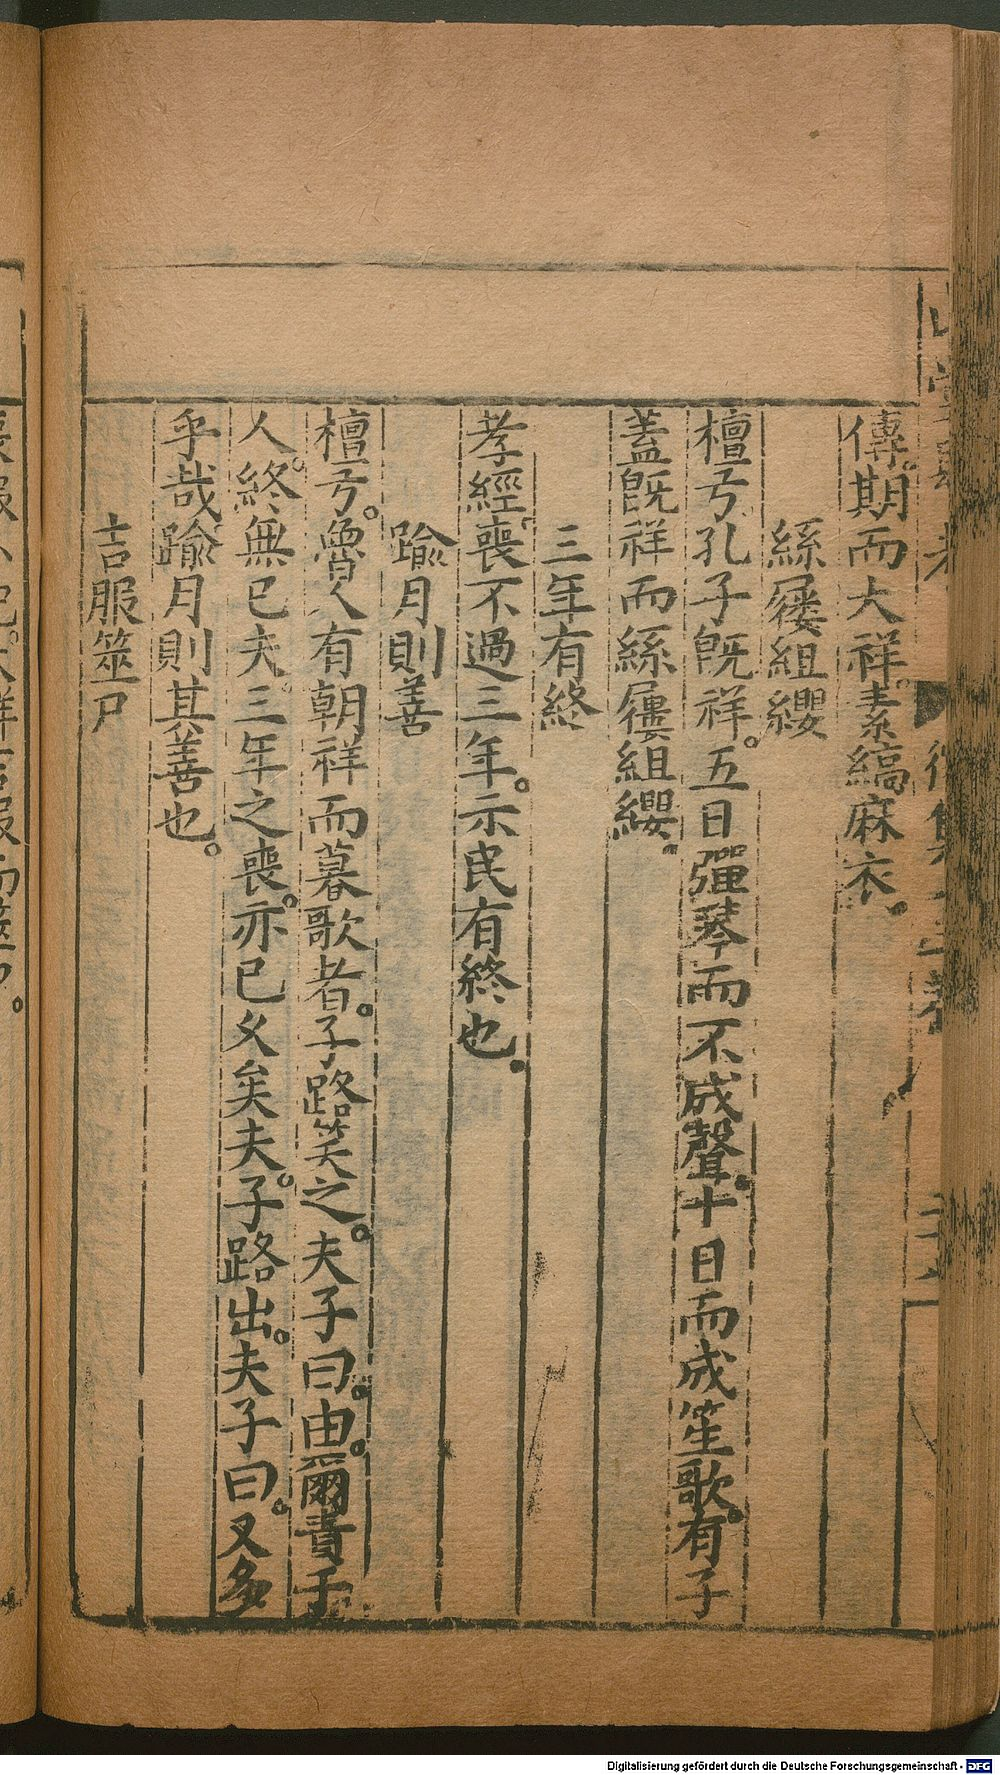 傳期而大祥。素縞麻衣。
絲屨組纓
檀弓孔子旣祥。五日彈琴而不成聲。十日而成笙歌。有子
蓋旣祥而絲屨組纓。
三年有終
孝經。喪不過三年。示民有終也。
踰月則善
檀弓。魯人有朝祥而暮歌者。子路笑之。夫子曰。由。爾責于
人。終無已夫。三年之喪。亦已久矣夫。子路出。夫子曰。又多
乎哉踰月則其善也。
吉服筮尸
Digitalisierung gefördert durch die Deutsche Forschungsgemeinschaft - DFG